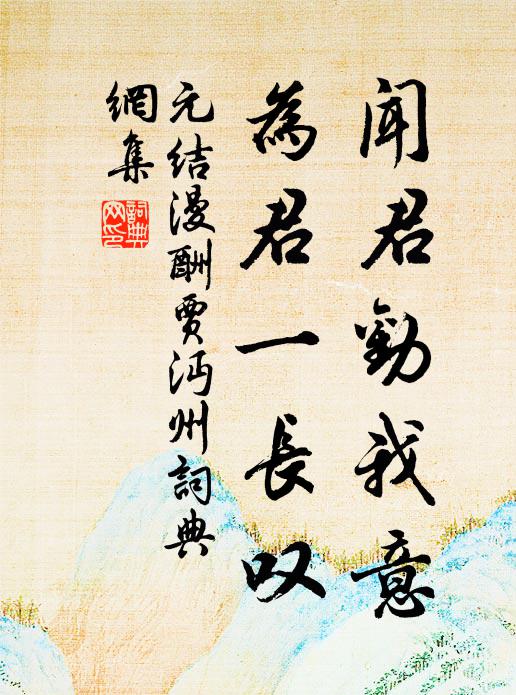 闻君劝我意
為君一長叹
元结漫酬贾沔州詞典
網集
詞典
网印